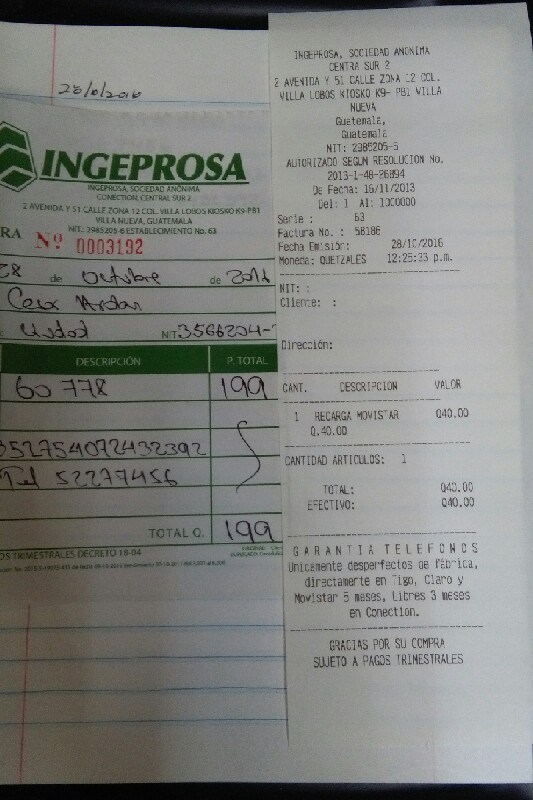 28/6/2016
INGEPROSA
INGEPROSA, SOCIEDAD ANÓNIMA
CONECTION, CENTRAL SUR 2
2 AVENIDA Y 51 CALLE ZONA 12 COL. VILLA LOBOS KIOSKO K9-PB1
VILLA NUEVA, GUATEMALA
NIT: 2985205-6 ESTABLECIMIENTO No. 63
RA Nº 0003192
28 de octubre de 2016
NIT 3566204-
DESCRIPCIÓN P. TOTAL
60 778 199
352754072432392
Tel 52277456
TOTAL Q. 199
OS TRIMESTRALES DECRETO 18-04
INGEPROSA, SOCIEDAD ANONIMA
CENTRA SUR 2
2 AVENIDA Y 51 CALLE ZONA 12 COL.
VILLA LOBOS KIOSKO K9- PB1 VILLA
NUEVA
Guatemala,
Guatemala
NIT: 2985205-6
AUTORIZADO SEGUN RESOLUCION No.
2013-1-48-26894
De Fecha: 16/11/2013
Del: 1 Al: 1000000
Serie : 63
Factura No. : 58186
Fecha Emisión: 28/10/2016
Moneda: QUETZALES 12:25:33 p.m.
NIT: :
Cliente: :
Dirección:
CANT. DESCRIPCION VALOR
1 RECARGA MOVISTAR Q40.00
Q.40.00
CANTIDAD ARTICULOS: 1
TOTAL: Q40.00
EFECTIVO: Q40.00
GARANTIA TELEFONOS
Unicamente desperfectos de fábrica,
directamente en Tigo, Claro y
Movistar 6 meses, Libres 3 meses
en Conection.
GRACIAS POR SU COMPRA
SUJETO A PAGOS TRIMESTRALES